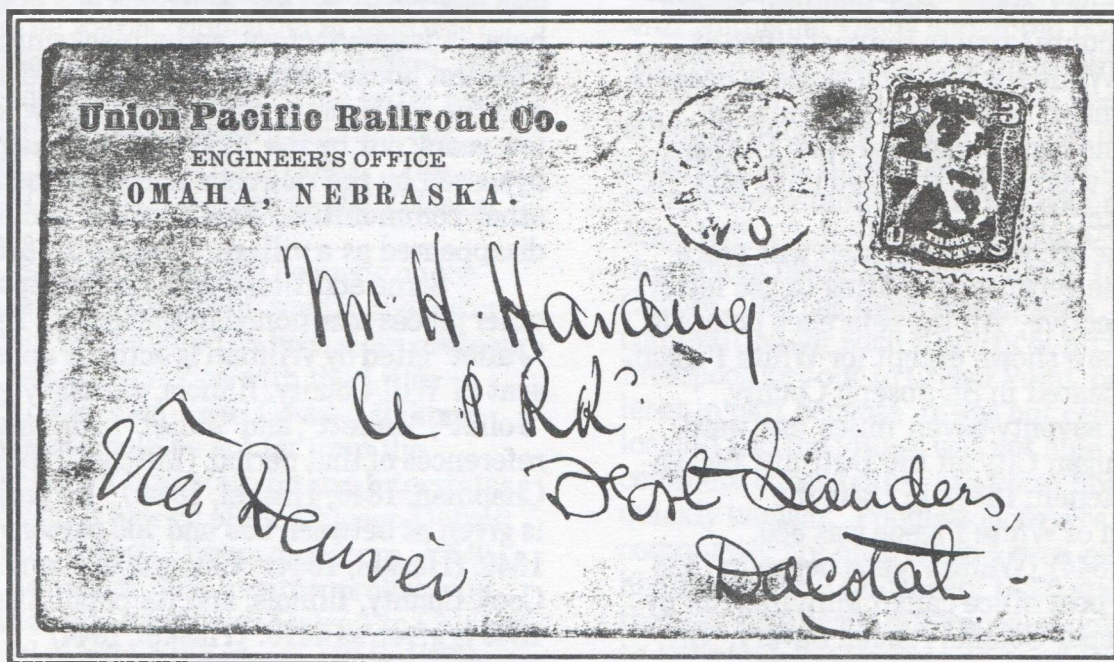 Union Pacific Railroad Co.
ENGINEER'S OFFICE
OMAHA, NEBRASKA.
3 3
THREE
CENTS
Mr. H. Harding
U P Rd
Fort Sanders,
Dacotah -
Via Denver